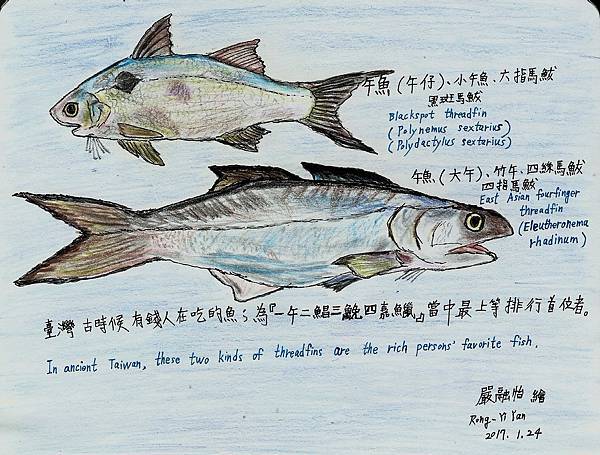 午魚(午仔)、小午魚、六指馬鮁
黑斑馬鮁
Blackspot threadfin
(Polynemus sextarius)
(Polydactylus sextarius)
午魚(大午)、竹午、四絲馬鮁
四指馬鮁
East Asian fourfinger
threadfin
(Eleutheronema
rhadinum)
臺灣古時候有錢人在吃的魚;為『一午二鯧三鮸四嘉鱲』當中最上等排行首位者。
In ancient Taiwan, these two kinds of threadfins are the rich persons' favorite fish.
嚴融怡 繪
Rong-Yi Yan
2017. 1. 24